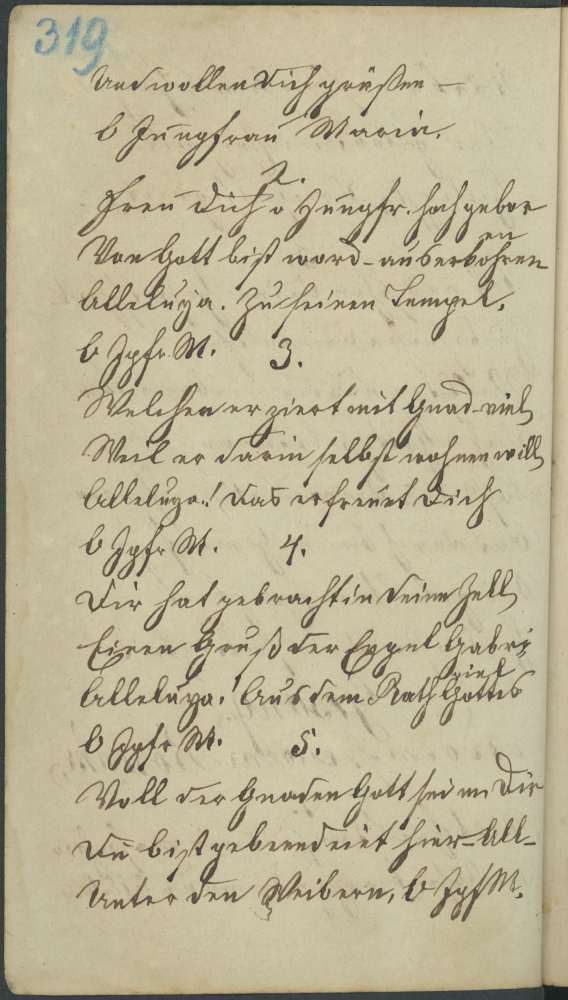 319
Und wollen dich grüßen –
O Jungfrau Maria.
2.
Freu dich o Jungfr. hochgebor
en
Von Gott bist word– auserkohren
Alleluja. Zu seinen Tempel.
O Jgfr. M. 3.
Welchen er ziert mit Gnad– viel
Weil er darin selbst wohnen will
Alleluja! das erfreuet dich
O Jgfr M. 4.
Dir hat gebracht in deine Zell
Einen Gruß der Engel Gabri
iel
Alleluja! Aus dem Rath Gottes
O Jgfr M. 5.
Voll der Gnaden Gott sei m Dir
Du bist gebenedeiet hier– All–
Unter den Weibern, O Jgf M.